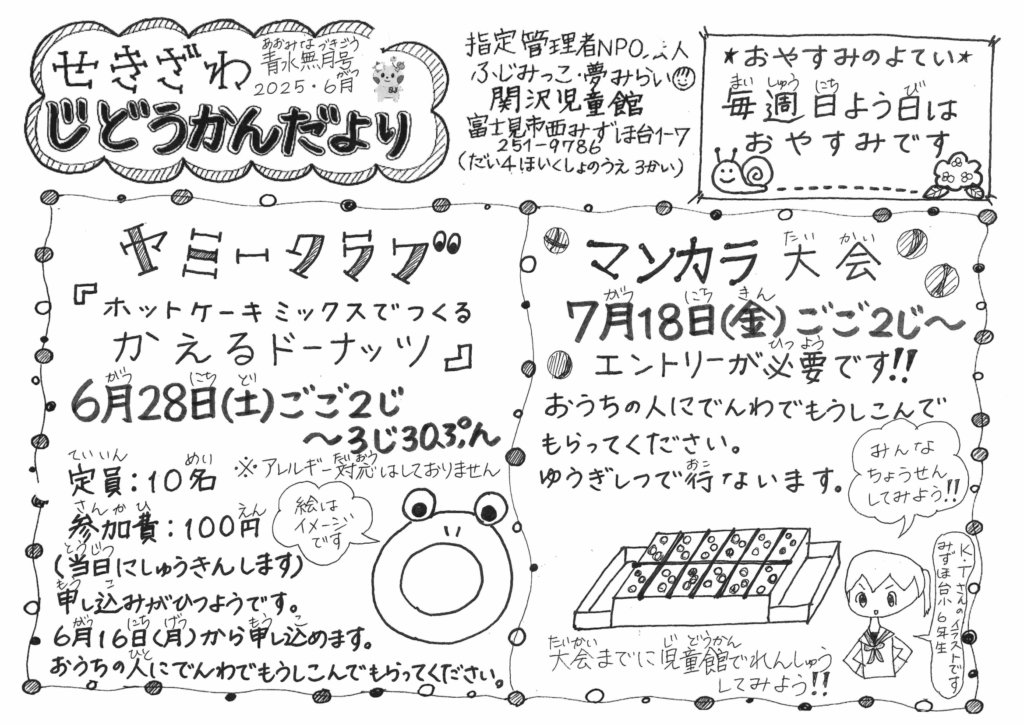 せきざわ
じどうかんだより
あおみなづきごう
青水無月号
2025・6月
がつ
指定管理者NPO法人
ふじみっこ・夢みらい
関沢児童館
富士見市西みずほ台1-7
251-9786
(だい4ほいくしょのうえ 3かい)
★おやすみのよてい★
まいしゅうにち び
毎週日よう日は
おやすみです
ヤミークラブ
『ホットケーキミックスでつくる
かえるドーナッツ』
がつ にち ど
6月28日(土)ごご2じ
〜3じ30ぷん
ていいん めい
定員:10名
だいおう
※アレルギー対応はしておりません
さんかひ えん
参加費:100円
とうじつ
(当日にしゅうきんします)
もう こ
申し込みがひつようです。
がつ にち げつ もう こ
6月16日(月)から申し込めます。
ひと
おうちの人にでんわでもうしこんでもらってください。
絵は
イメージ
です
たい かい
マンカラ大会
がつ にち きん
7月18日(金)ごご2じ〜
ひつよう
エントリーが必要です!!
おうちの人にでんわでもうしこんで
もらってください。
おこ
ゆうぎしつで行ないます。
みんな
ちょうせん
してみよう!!
K・Tさんのイラストです
みずほ台小 6年生
たいかい じ どうかん
大会までに児童館でれんしゅう
してみよう!!